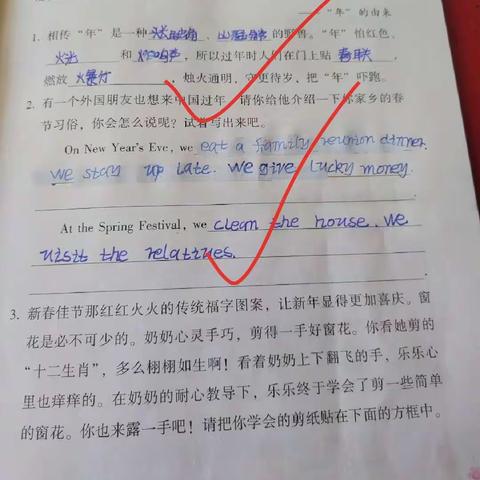 ——“年”的由来
1. 相传“年”是一种 、 的野兽。“年”怕红色、
火光 和 ，所以过年时人们在门上贴 春联 ，
燃放 ，烛火通明，守更待岁，把“年”吓跑。
2. 有一个外国朋友也想来中国过年，请你给他介绍一下你家乡的春
节习俗，你会怎么说呢？试着写出来吧。
On New Year's Eve, we eat a family reunion dinner.
we stay up late. we give lucky money.
At the Spring Festival, we clean the house. we
visit the relatives.
3. 新春佳节那红红火火的传统福字图案，让新年显得更加喜庆。窗
花是必不可少的。奶奶心灵手巧，剪得一手好窗花。你看她剪的
“十二生肖”，多么栩栩如生啊！看着奶奶上下翻飞的手，乐乐心
里也痒痒的。在奶奶的耐心教导下，乐乐终于学会了剪一些简单
的窗花。你也来露一手吧！请把你学会的剪纸贴在下面的方框中。